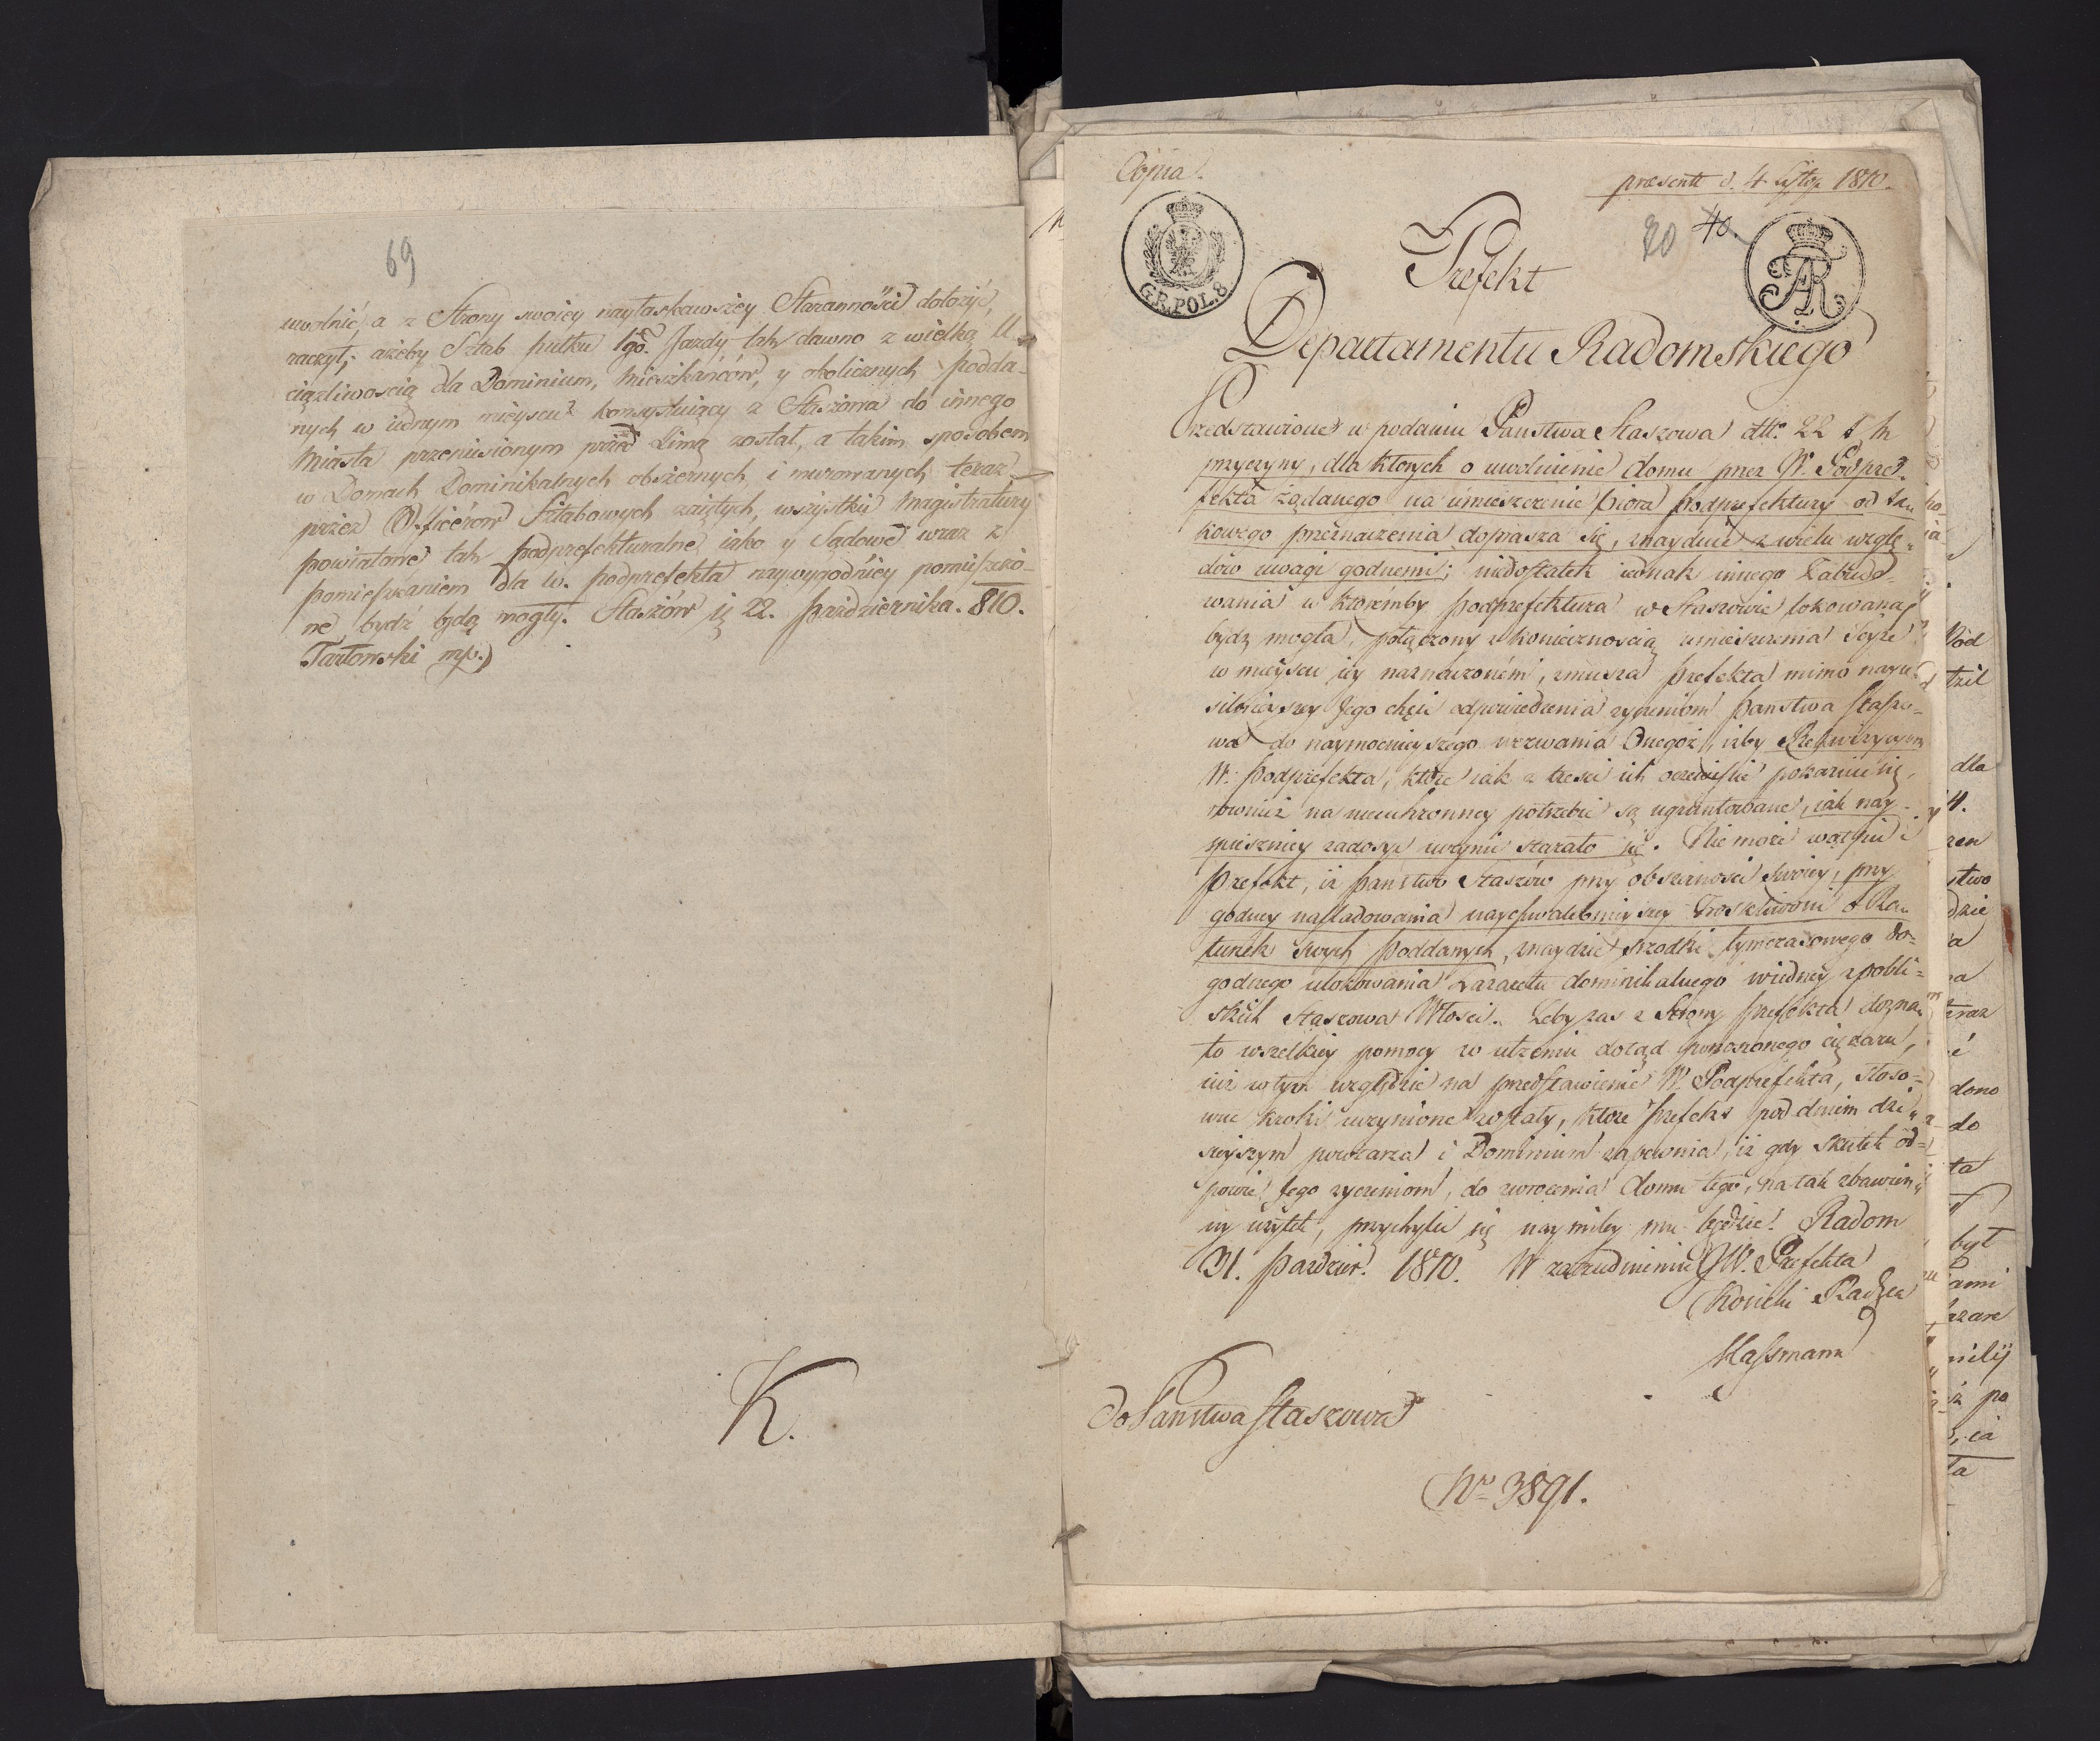 69
uwolnić, a z Strony swoiey nayłaskawszey Staranności dołożyć,
raczył; ażeby Sztab pułku 1go. Jazdy tak dawno z wielką U-
ciążliwością dla Dominium, Mieszkańców, y okolicznych podda-
nych w iednym mieyscu konsystuiący z Staszowa do innego
Miasta przeniesionym przed Zimą został, a takim sposobem
w Domach Dominikalnych obszernych, i murowanych teraz
przez Officerów Sztabowych zaiętych, wszystkie Magistratury
powiatowe tak podprefekturalne iako y Sądowe wraz z
pomieszkaniem dla W. podprefekta naywygodniey pomieszczo-
ne bydź będą mogły. Staszów d. 22. Października. 810.
Tarłowski mp.)
K.
Copia.
præsente d. 4 Listop. 1810.
G.R.POL.8
70 40.
FAR
Prefekt
Departamentu Radomskiego
Przedstawione w podaniu Państwa Staszowa dtto. 22
przyczyny, dla których o uwolnienie domu przez W. Podpre-
fekta żądanego na umieszczenie biora podprefektury od ta-
kowego przeznaczenia doprasza się, znayduie z wielu wzglę-
dów uwagi godnemi; niedostatek iednak innego Zabudo-
wania w któremby podprefektura w Staszowie lokowana
bydź mogła, połączony z koniecznością umieszczenia Teyże
w mieyscu iey naznaczoném, zmusza Prefekta mimo nayu-
silnieyszey Jego chęci odpowiedzenia życzeniom Państwa Staszo-
wa do naymocnieyszego wezwania Onegoż, iżby Rekwizycyom
W. Podprefekta, które iak z treści ich oczewiście pokazuie się,
równie na nieuchronney potrzebie są ugruntowane, iak nay-
spieszniey zadosyć uczynić starało się. Nie może wątpić
Prefekt, iż Państwo Staszów przy obszerności swoiey, przy
godney naśladowania naychwalebnieyszey troskliwości o Ra-
tunek swych Poddanych, znaydzie srzodki tymczasowego do-
godnego ulokowania Lazaretu dominikalnego w iedney z pobli-
skich Staszowa Włości. Żeby zaś z Strony Prefekta dozna-
ło wszelkiey pomocy w ulżeniu dotąd ponoszonego ciężaru,
iuż w tym względzie na przedstawienie W. Podprefekta, stoso-
wne kroki uczynione zostały, które Prefekt pod dniem dzi-
sieyszym powtarza i Dominium zapewnia, iż gdy skutek od-
powie Jego życzeniom, do zwrócenia domu tego, na tak zbawien-
ny użytek, przychylić się naymiley mu będzie. Radom
31. Paździer. 1810. W zatrudnieniu JW. Prefekta
Konicki Radzca
Hassmann
Do Państwa Staszowa
No 3891.